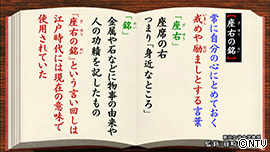 【座右の銘】
常に自分の心にとめておく
戒めや励ましとする言葉
「座右」
座席の右
つまり「身近なところ」
「銘」
金属や石などに物事の由来や
人の功績を記したもの
「座右の銘」という言い回しは
江戸時代には現在の意味で
使用されていた
©NTV